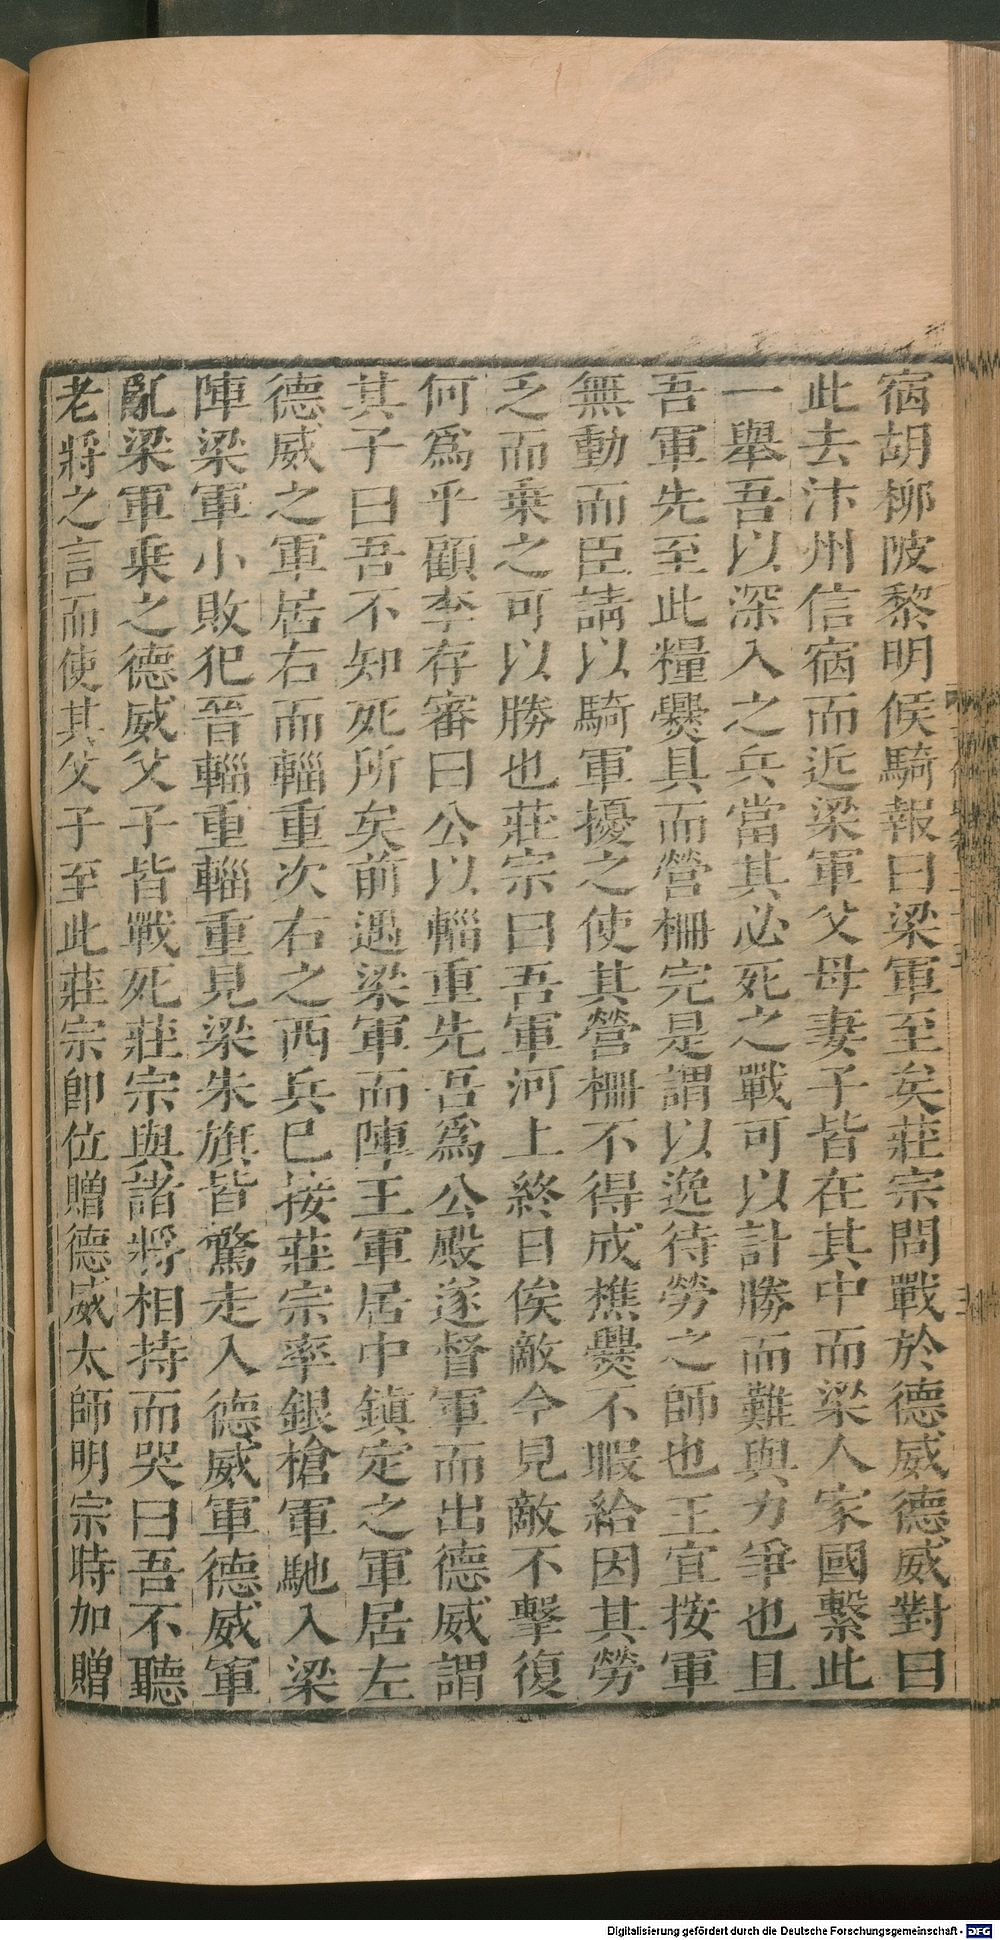 宿胡柳陂黎明候騎報曰梁軍至矣莊宗問戰於德威德威對曰
此去汴州信宿而近梁軍父母妻子皆在其中而梁人家國繫此
一舉吾以深入之兵當其必死之戰可以計勝而難與力爭也且
吾軍先至此糧爨具而營柵完是謂以逸待勞之師也王宜按軍
無動而臣請以騎軍擾之使其營柵不得成樵爨不暇給因其勞
乏而乗之可以勝也莊宗曰吾軍河上終日俟敵今見敵不擊復
何爲乎顧李存審曰公以輜重先吾爲公殿遂督軍而出德威謂
其子曰吾不知死所矣前遇梁軍而陣王軍居中鎮定之軍居左
德威之軍居右而輜重次右之西兵巳接莊宗率銀槍軍馳入梁
陣梁軍小敗犯晉輜重輜重見梁朱旗皆驚走入德威軍德威軍
亂梁軍乗之德威父子皆戰死莊宗與諸將相持而哭曰吾不聽
老將之言而使其父子至此莊宗卽位贈德威太師明宗時加贈
Digitalisierung gefördert durch die Deutsche Forschungsgemeinschaft - DFG